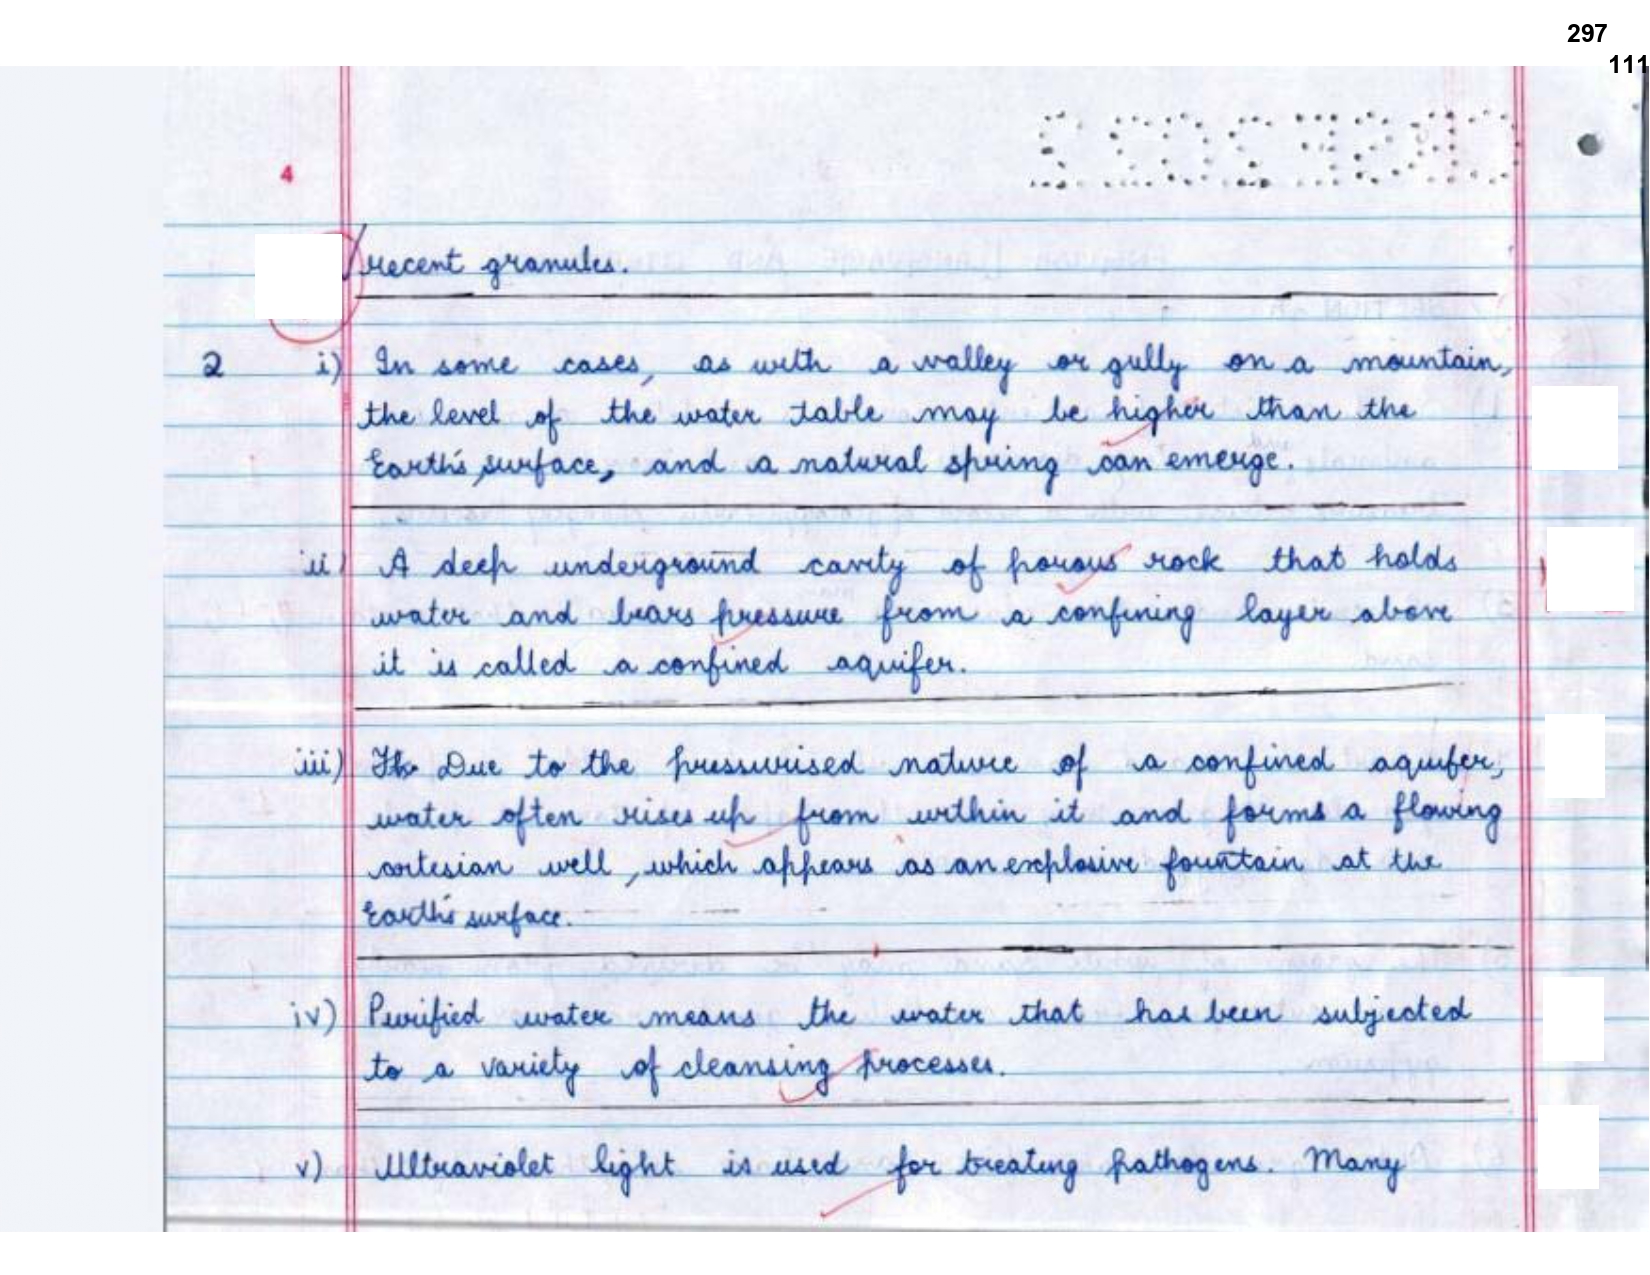 297
111
CBSE2022
4
recent granules.
2 i) In some cases, as with a valley or gully on a mountain,
the level of the water table may be higher than the
Earth's surface, and a natural spring can emerge.
ii) A deep underground cavity of porous rock that holds
water and bears pressure from a confining layer above
it is called a confined aquifer.
iii) Due to the pressurised nature of a confined aquifer,
water often rises up from within it and forms a flowing
artesian well, which appears as an explosive fountain at the
Earth's surface.
iv) Purified water means the water that has been subjected
to a variety of cleansing processes.
v) Ultraviolet light is used for treating pathogens. Many